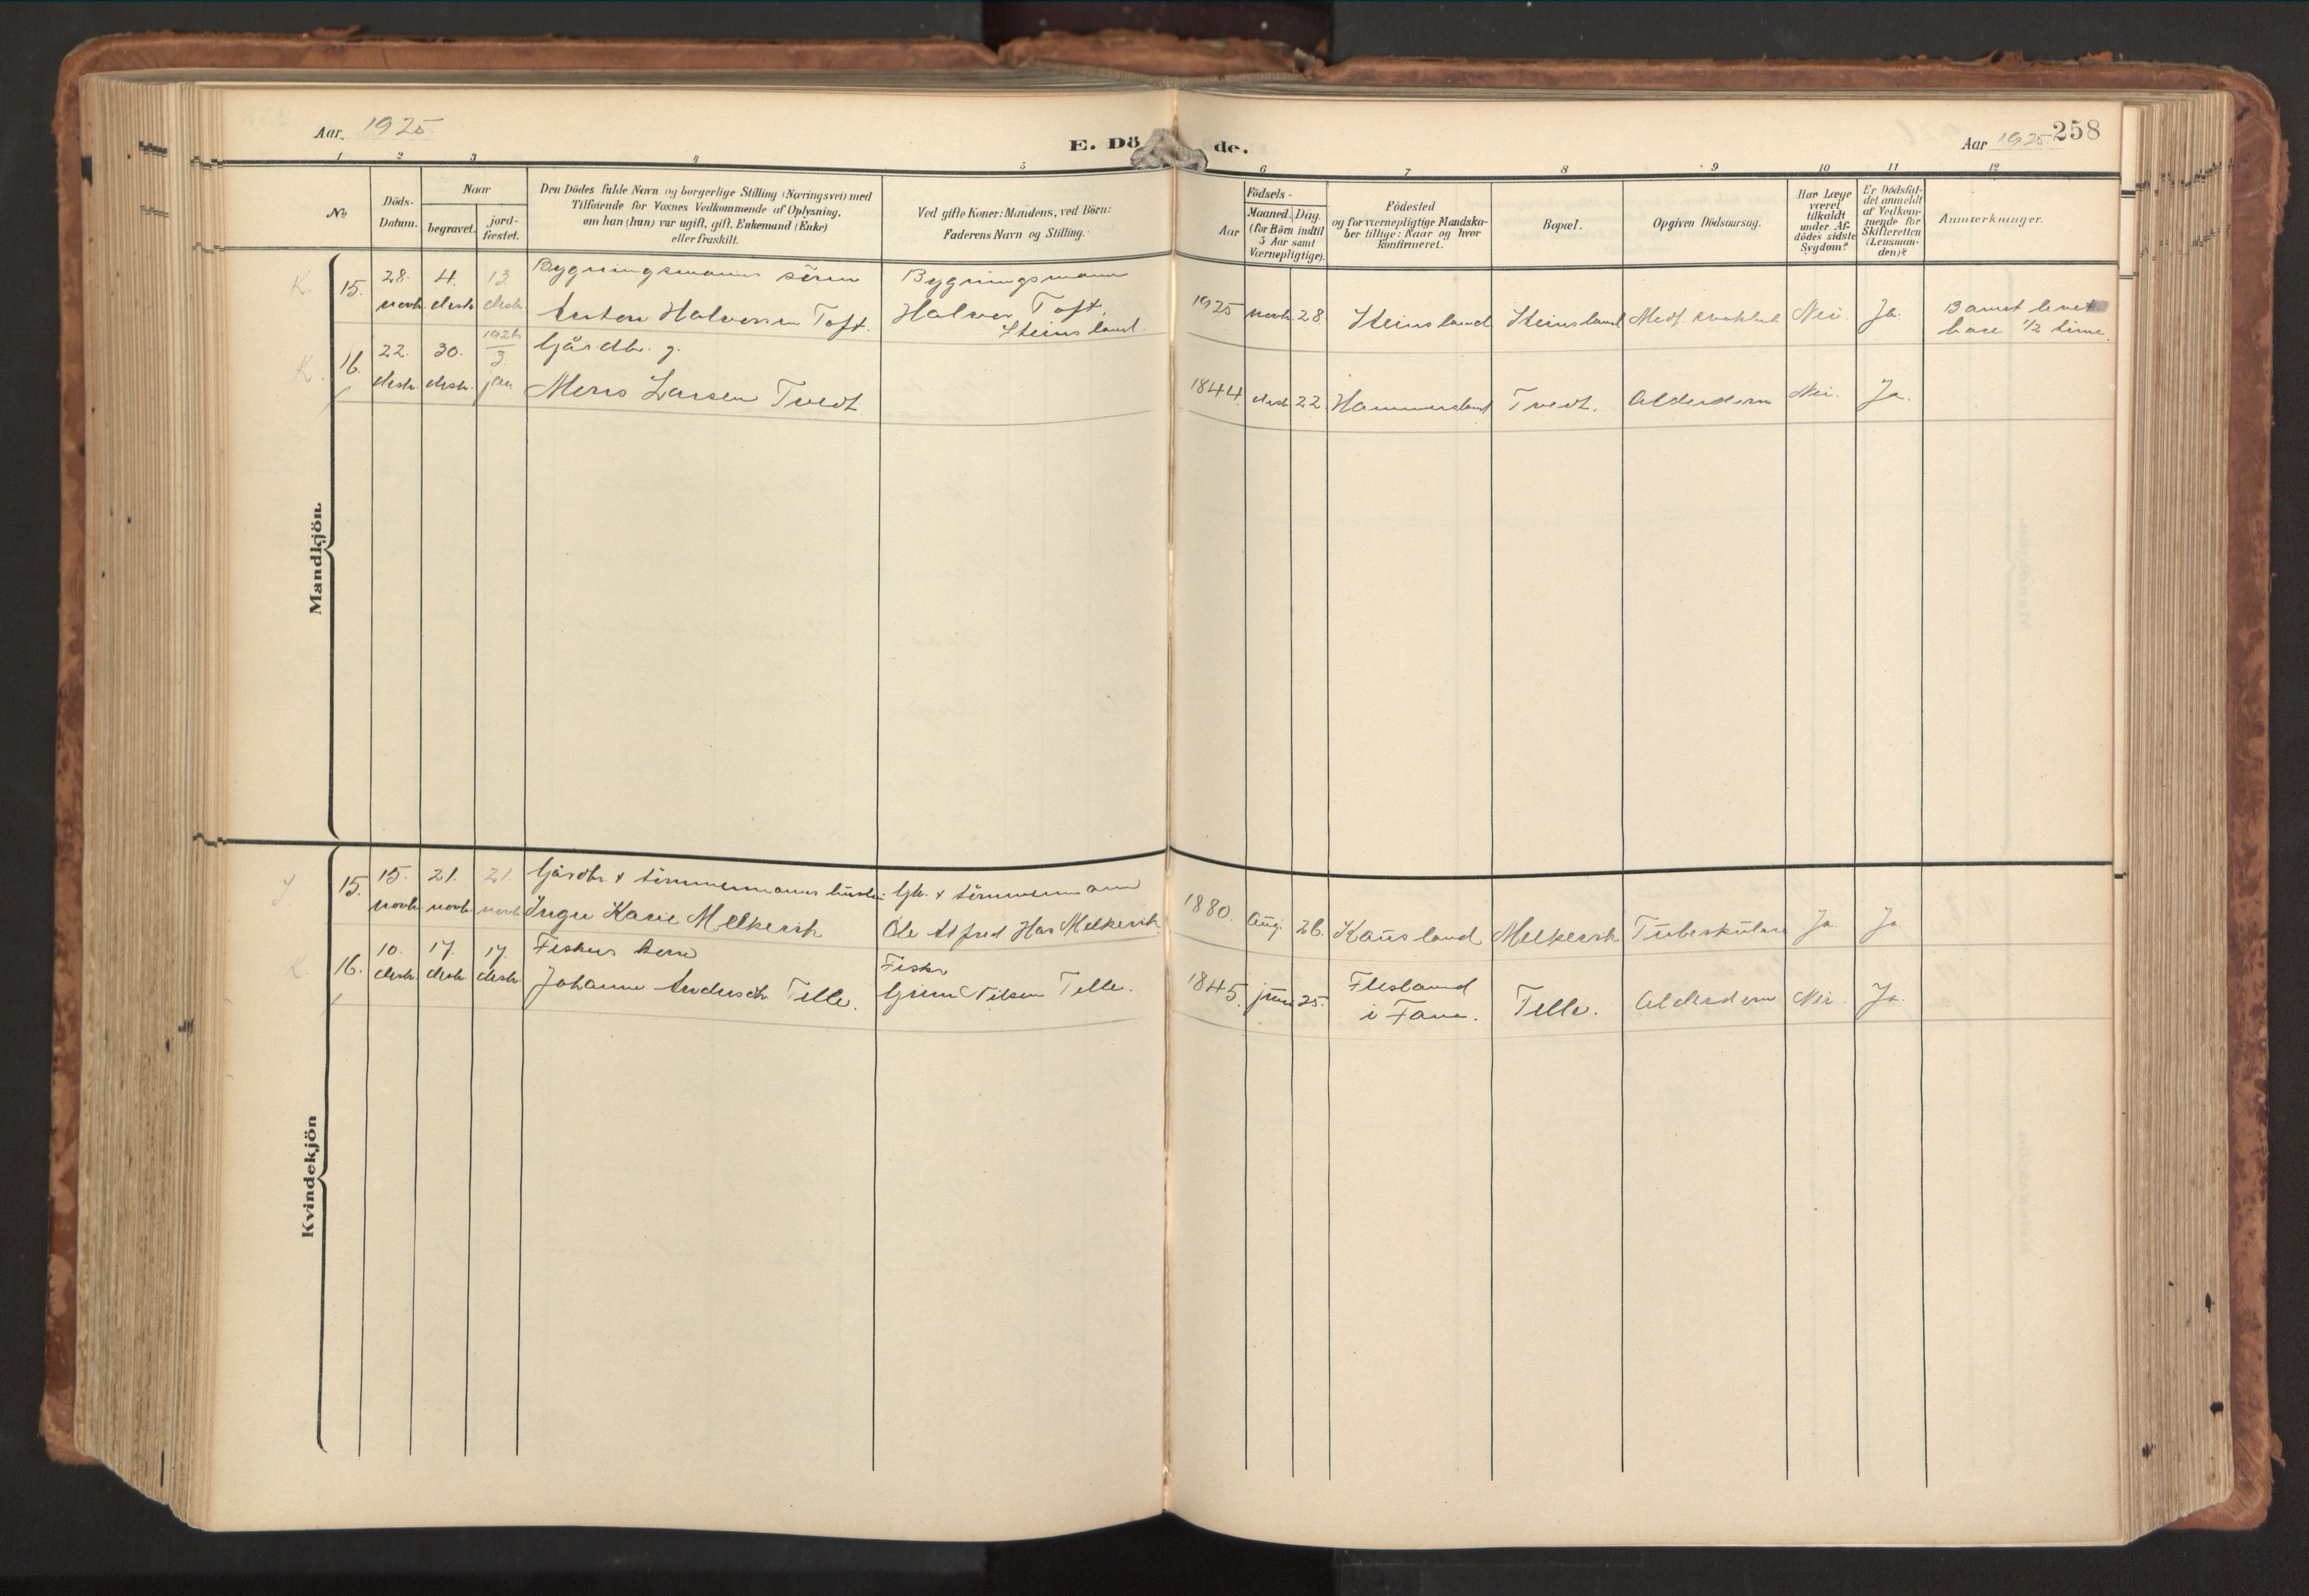 Aar. 1925.
E. Dö de.
Aar 1925 258
1 2 3 4 5 6 7 8 9 10 11 12
No
Döds-
Datum.
Naar
begravet.
jord-
fæstet.
Den Dödes fulde Navn og borgerlige Stilling (Næringsvei) med
Tilføiende for Voxnes Vedkommende af Oplysning,
om han (hun) var ugift, gift, Enkemand (Enke)
eller fraskilt.
Ved gifte Koner: Mandens, ved Börn:
Faderens Navn og Stilling.
Födsels-
Aar
Maaned. Dag.
(for Börn indtil
5 Aar samt
Værnepligtige).
Födested
og for værnepligtige Mandska-
ber tillige: Naar og hvor
konfirmeret.
Bopæl.
Opgiven Dödsaarsag.
Har Læge
været
tilkaldt
under Af-
dödes sidste
Sygdom?
Er Dödsfal-
det anmeldt
af Vedkom-
mende for
Skifteretten
(Lensman-
den)?
Anmærkninger.
Mandkjön.
K. 15. 28. 4. 13. Bygningsmanns sönn Bygningsmann
novb. desb. desb. Anton Halvorsen Toft. Halvor Toft,
Steinsland.
1925 novb. 28. Steinsland Steinsland Medf. svakhet Nei. Ja. Barnet levet
bare 1/2 time.
K. 16. 22. 30. 1926 Gårdbr. g.
desb. desb. 3 jan Mons Larsen Tvedt
1844. desb 22. Hammersland Tvedt. Alderdom Nei. Ja.
Kvindekjön
J. 15. 15. 21. 21. Gårdbr. & tömmermanns hustru Gb. & tömmermann
novb. novb. novb. Inga Karie Melkevik Ole Alfred Has Melkevik.
1880. Aug. 26. Kausland Melkevik Tuberkulose Ja. Ja
K. 16. 10. 17. 17. Fiskers kone Fisker
desb. desb. desb. Johanne Andersdtr. Telle. Grim Nilsen Telle.
1845. juni 25. Flesland
i Fana. Telle. Alderdom Nei. Ja.